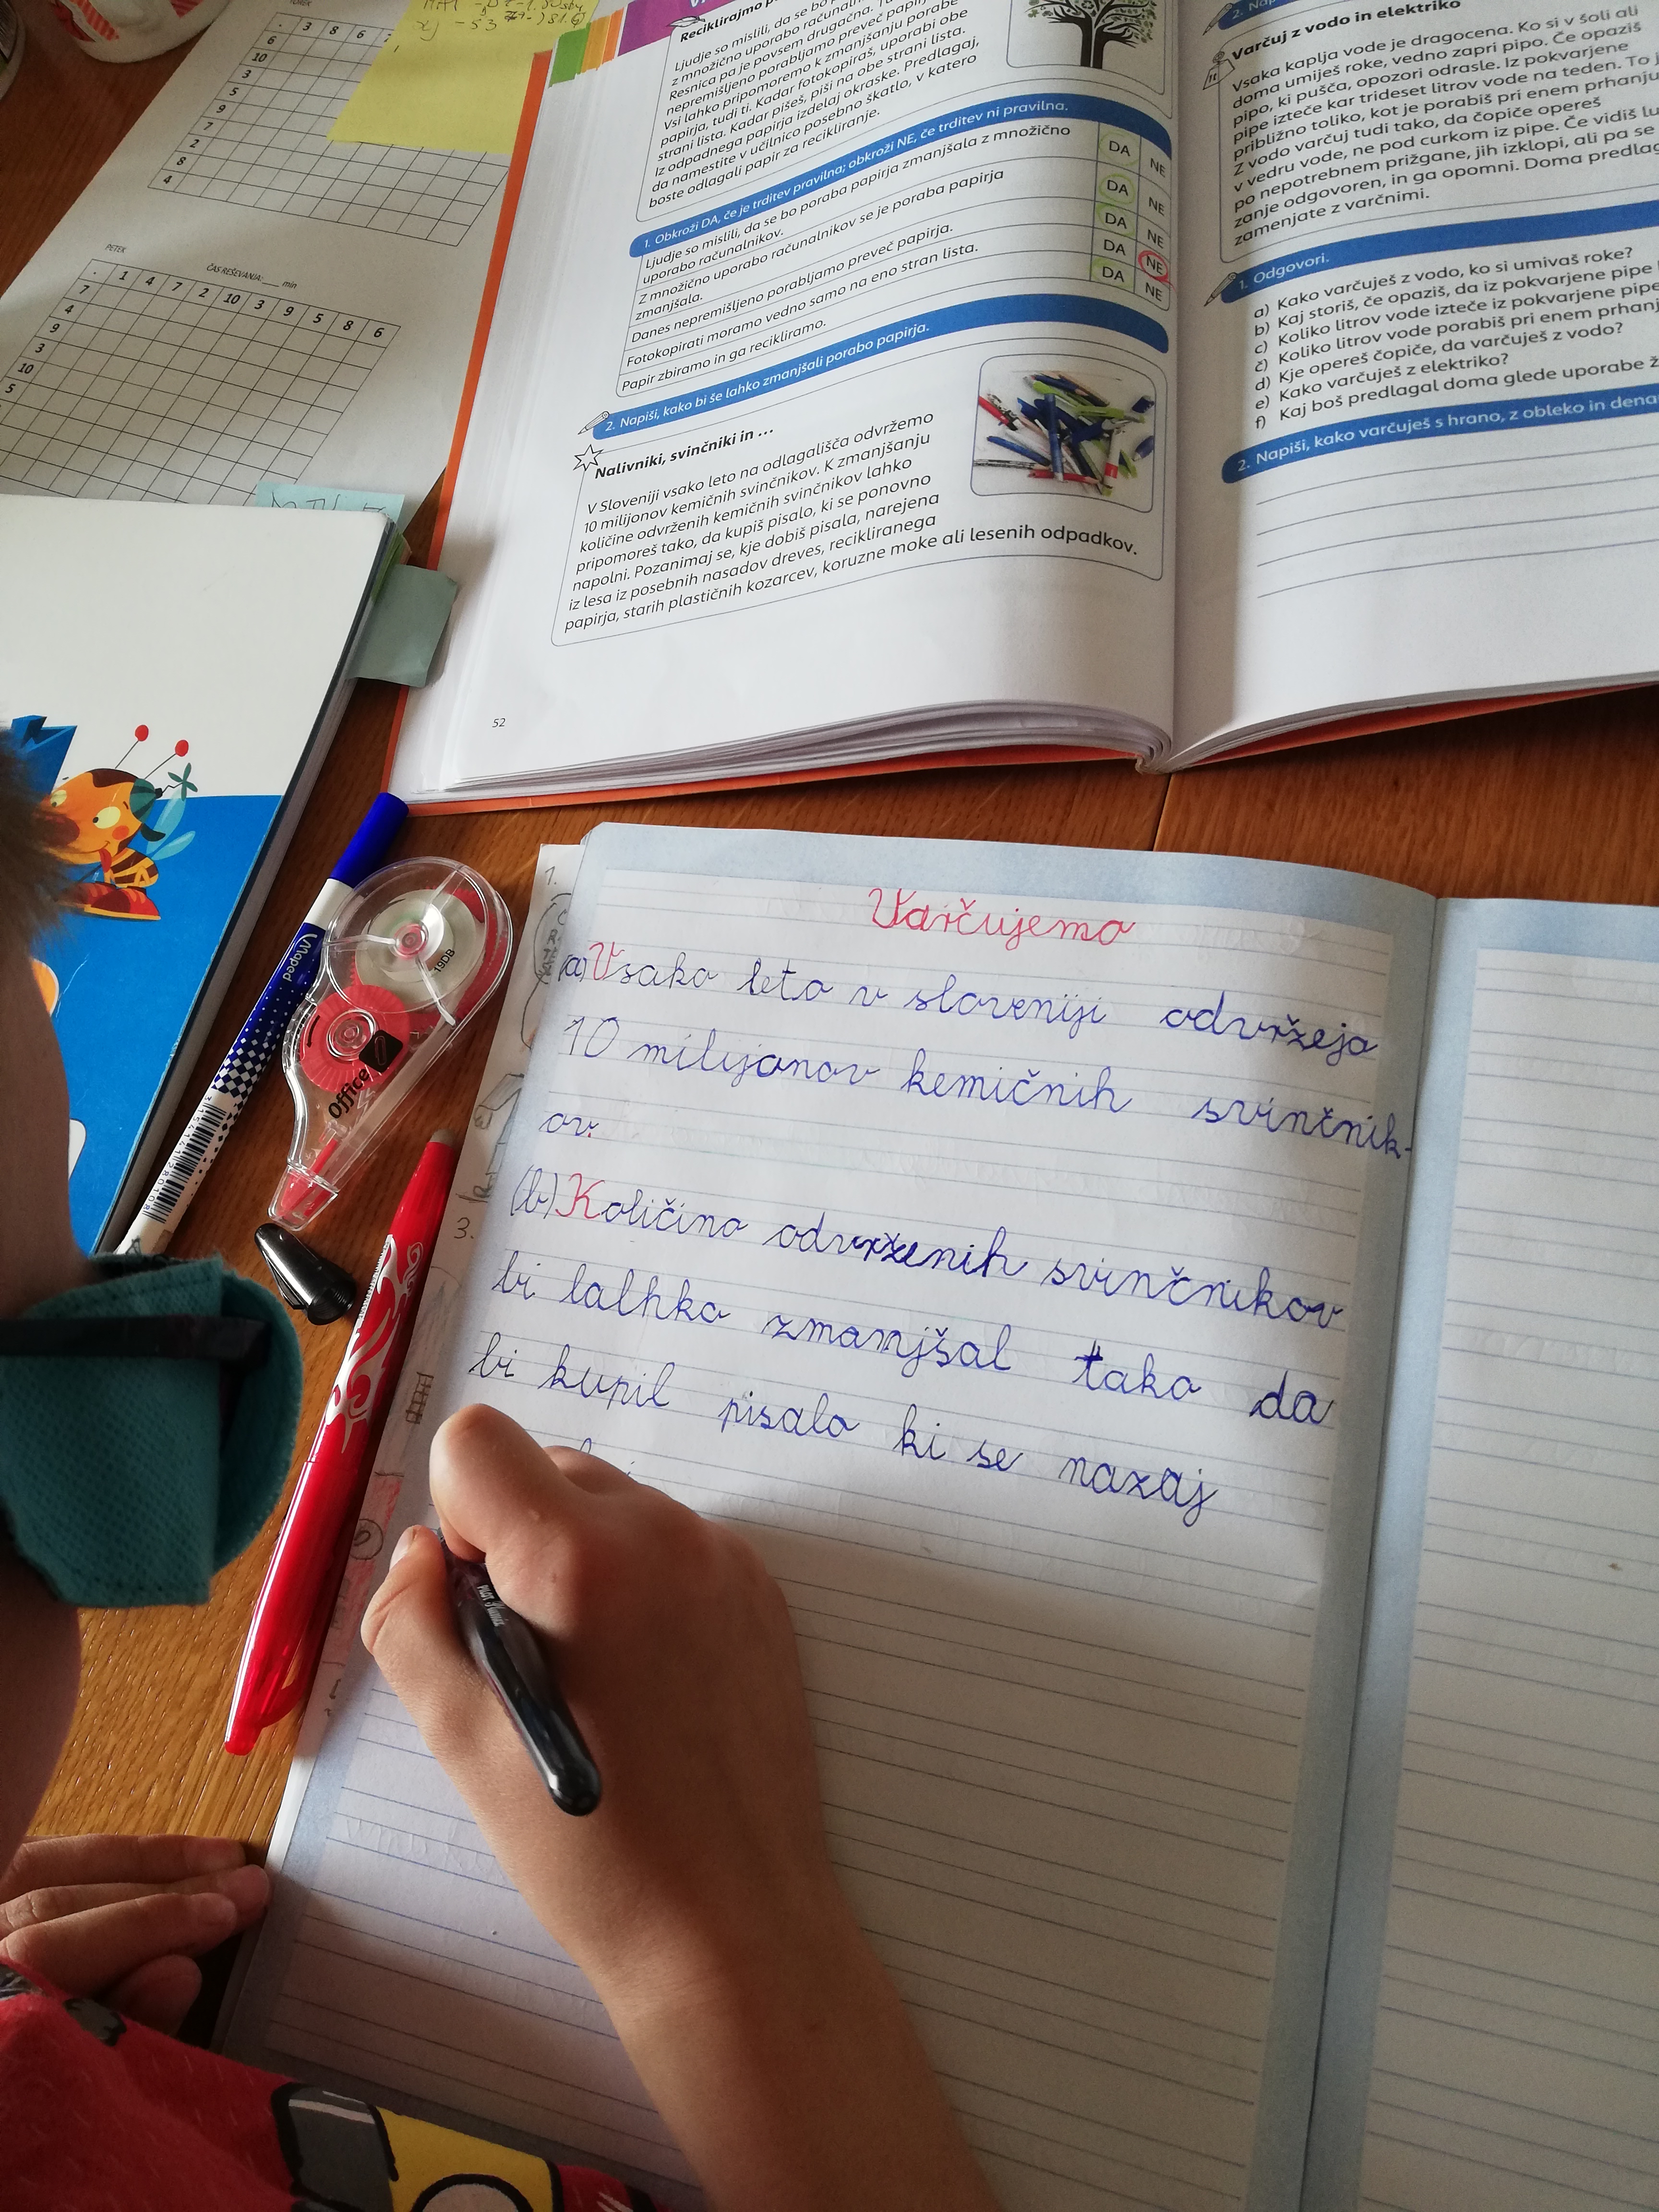 TOREK
· 3 8 6
6
10
3
5
9
7
2
8
4
PETEK
ČAS REŠEVANJA: ___ min
· 1 4 7 2 10 3 9 5 8 6
7
4
9
3
10
5
Reciklirajmo
Ljudje so mislili, da se bo
z množično uporabo računaln
Resnica pa je povsem drugačna.
nepremišljeno porabljamo preveč papirj
Vsi lahko pripomoremo k zmanjšanju porabe
papirja, tudi ti. Kadar fotokopiraš, uporabi obe
strani lista. Kadar pišeš, piši na obe strani lista.
Iz odpadnega papirja izdelaj okraske. Predlagaj,
da namestite v učilnico posebno škatlo, v katero
boste odlagali papir za recikliranje.
1. Obkroži DA, če je trditev pravilna; obkroži NE, če trditev ni pravilna.
Ljudje so mislili, da se bo poraba papirja zmanjšala z množično
uporabo računalnikov. DA NE
Z množično uporabo računalnikov se je poraba papirja
zmanjšala. DA NE
Danes nepremišljeno porabljamo preveč papirja. DA NE
Fotokopirati moramo vedno samo na eno stran lista. DA NE
Papir zbiramo in ga recikliramo. DA NE
2. Napiši, kako bi še lahko zmanjšali porabo papirja.
Nalivniki, svinčniki in ...
V Sloveniji vsako leto na odlagališča odvržemo
10 milijonov kemičnih svinčnikov. K zmanjšanju
količine odvrženih kemičnih svinčnikov lahko
pripomoreš tako, da kupiš pisalo, ki se ponovno
napolni. Pozanimaj se, kje dobiš pisala, narejena
iz lesa iz posebnih nasadov dreves, recikliranega
papirja, starih plastičnih kozarcev, koruzne moke ali lesenih odpadkov.
52
2. Nap
Varčuj z vodo in elektriko
Vsaka kaplja vode je dragocena. Ko si v šoli ali
doma umiješ roke, vedno zapri pipo. Če opaziš
pipo, ki pušča, opozori odrasle. Iz pokvarjene
pipe izteče kar trideset litrov vode na teden. To j
približno toliko, kot je porabiš pri enem prhanju
Z vodo varčuj tudi tako, da čopiče opereš
v vedru vode, ne pod curkom iz pipe. Če vidiš lu
po nepotrebnem prižgane, jih izklopi, ali pa se
zanje odgovoren, in ga opomni. Doma predlag
zamenjate z varčnimi.
1. Odgovori.
a) Kako varčuješ z vodo, ko si umivaš roke?
b) Kaj storiš, če opaziš, da iz pokvarjene pipe
c) Koliko litrov vode izteče iz pokvarjene pipe
č) Koliko litrov vode porabiš pri enem prhanj
d) Kje opereš čopiče, da varčuješ z vodo?
e) Kako varčuješ z elektriko?
f) Kaj boš predlagal doma glede uporabe ž
2. Napiši, kako varčuješ s hrano, z obleko in dena
Maped
Office
19DB
3.
Varčujemo
(a) Vsako leto v sloveniji odvržejo
10 milijonov kemičnih svinčnik-
ov.
(b) Količino odvrženih svinčnikov
bi lalhko zmamjšal tako da
bi kupil pisalo ki se nazaj